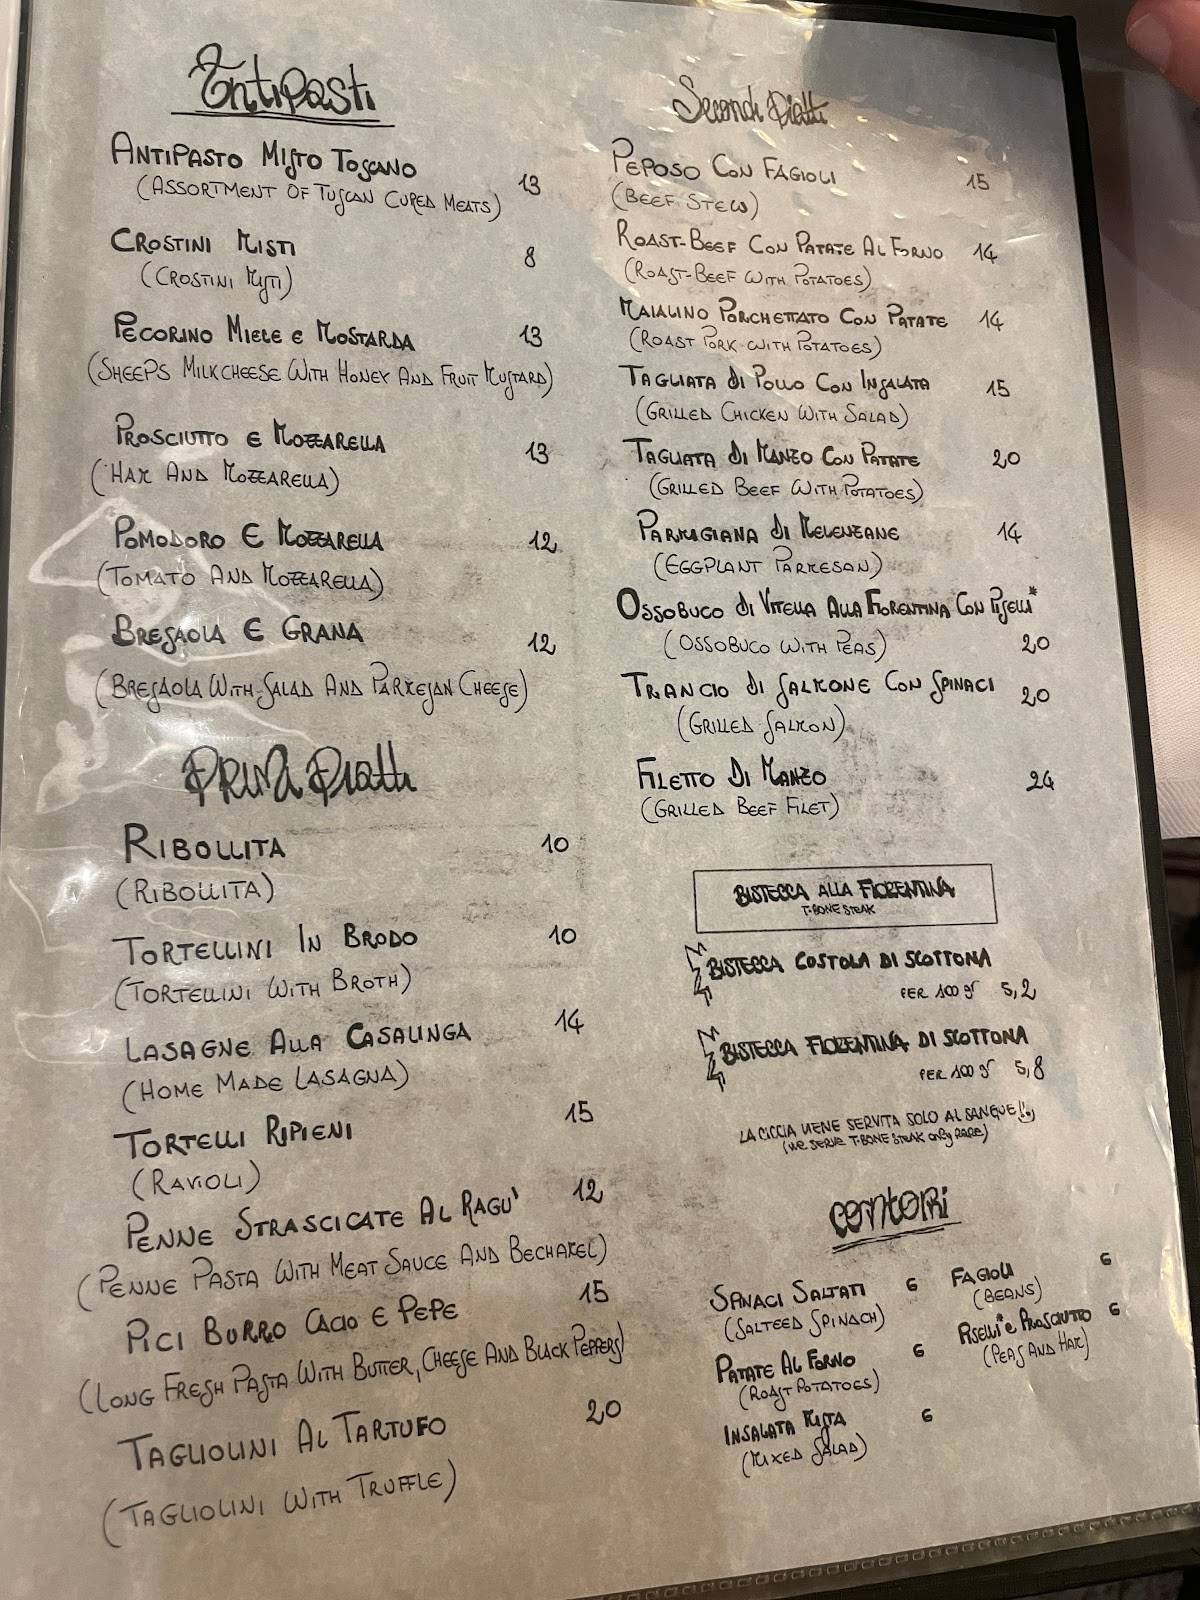 Antipasti
Antipasto Misto Toscano 13
(Assortment of Tuscan Cured Meats)
Crostini Misti 8
(Crostini Misti)
Pecorino Miele e Mostarda 13
(Sheeps Milkcheese With Honey And Fruit Mustard)
Prosciutto e Mozzarella 13
(Ham And Mozzarella)
Pomodoro E Mozzarella 12
(Tomato And Mozzarella)
Bresaola E Grana 12
(Bresaola With Salad And Parmesan Cheese)
Primi Piatti
Ribollita 10
(Ribollita)
Tortellini In Brodo 10
(Tortellini With Broth)
Lasagne Alla Casalinga 14
(Home Made Lasagna)
Tortelli Ripieni 15
(Ravioli)
Penne Strascicate Al Ragu' 12
(Penne Pasta With Meat Sauce And Bechamel)
Pici Burro Cacio e Pepe 15
(Long Fresh Pasta With Butter, Cheese And Black Peppers)
Tagliolini Al Tartufo 20
(Tagliolini With Truffle)
Secondi Piatti
Peposo Con Fagioli 15
(Beef Stew)
Roast-Beef Con Patate Al Forno 14
(Roast-Beef With Potatoes)
Maialino Porchettato Con Patate 14
(Roast Pork With Potatoes)
Tagliata di Pollo Con Insalata 15
(Grilled Chicken With Salad)
Tagliata di Manzo Con Patate 20
(Grilled Beef With Potatoes)
Parmigiana di Melenzane 14
(Eggplant Parmesan)
Ossobuco di Vitella Alla Fiorentina Con Piselli*
(Ossobuco With Peas) 20
Trancio di Salmone Con Spinaci 20
(Grilled Salmon)
Filetto Di Manzo 24
(Grilled Beef Filet)
Bistecca alla Fiorentina
T-Bone Steak
Bistecca Costola di Scottona
per 100 gr 5,2
Bistecca Fiorentina di Scottona
per 100 gr 5,8
La ciccia viene servita solo al sangue!!
(we serve T-Bone Steak only rare)
Contorni
Spinaci Saltati 6
(Salteed Spinach)
Patate Al Forno 6
(Roast Potatoes)
Insalata Mista 6
(Mixed Salad)
Fagioli 6
(Beans)
Piselli* e Prosciutto 6
(Peas And Ham)